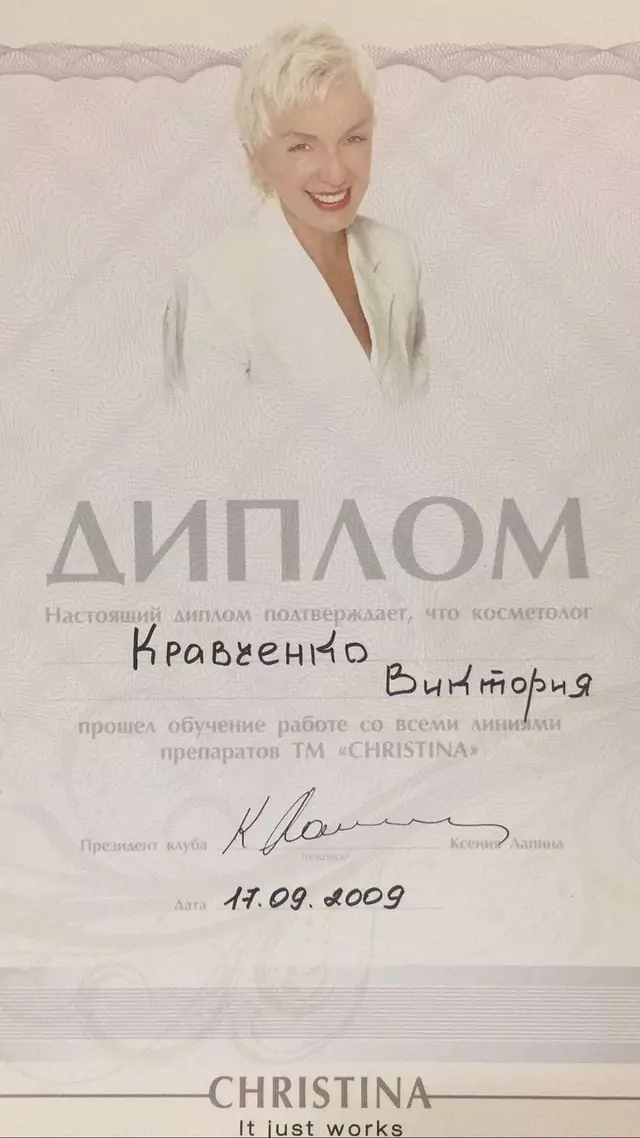 ДИПЛОМ
Настоящий диплом подтверждает, что косметолог
Кравченко
Виктория
прошел обучение работе со всеми линиями
препаратов ТМ «CHRISTINA»
Президент клуба К Лапина Ксения Лапина
(подпись)
Дата 17.09.2009
CHRISTINA
It just works